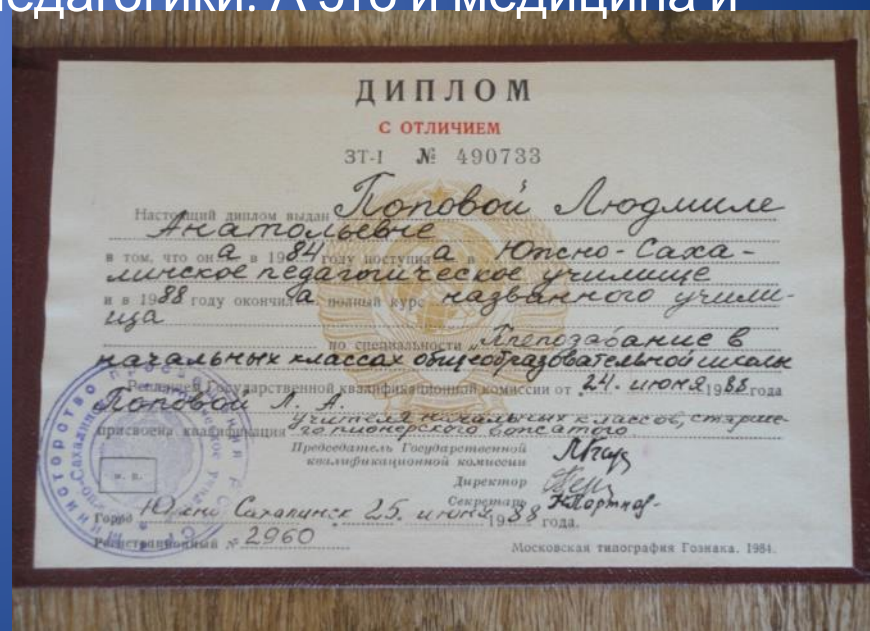 педагогики. А это и медицина и
ДИПЛОМ
С ОТЛИЧИЕМ
ЗТ-I № 490733
Настоящий диплом выдан Поповой Людмиле
Анатольевне
в том, что она в 1984 году поступила в Южно-Саха-
линское педагогическое училище
и в 1988 году окончила полный курс названного учили-
ща
по специальности „Преподавание в
начальных классах общеобразовательной школы
Решением Государственной квалификационной комиссии от „24. июня 1988 года
Поповой Л. А.
присвоена квалификация учителя начальных классов, старше-
го пионерского вожатого
Председатель Государственной
квалификационной комиссии
Директор
Секретарь
Город Южно-Сахалинск 25. июня 1988 года.
Регистрационный № 2960
Московская типография Гознака. 1984.
м. п.